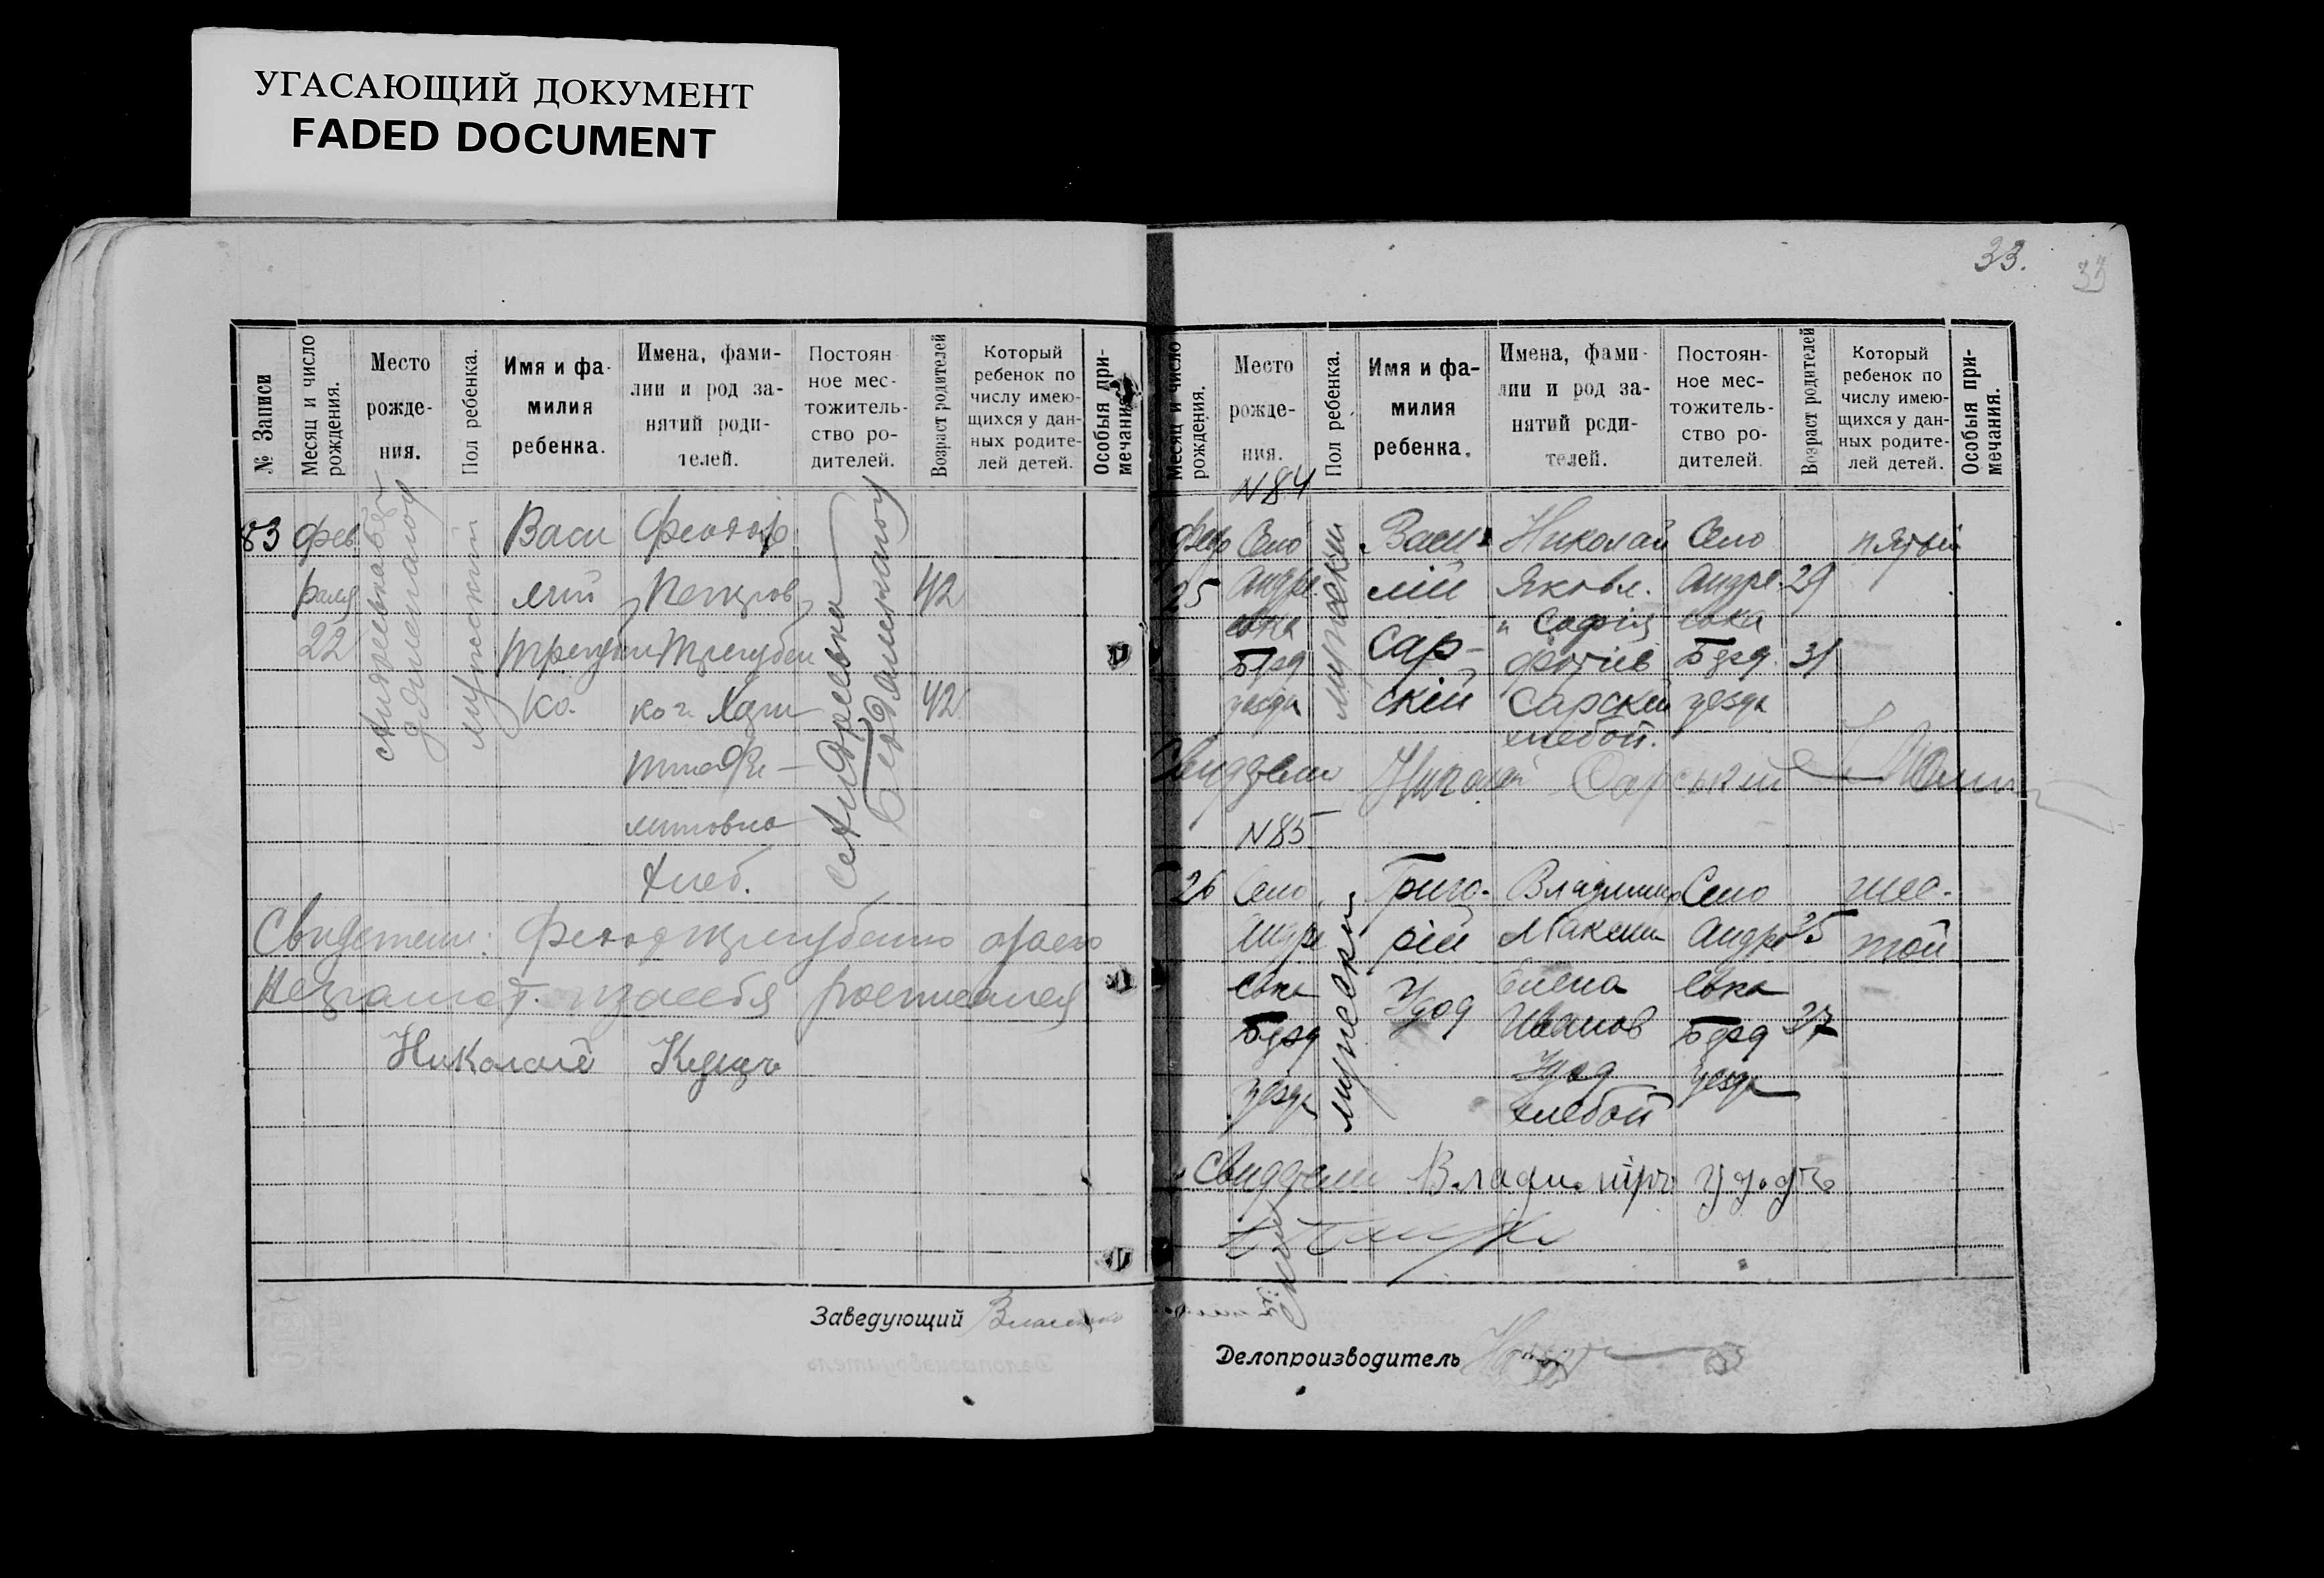 УГАСАЮЩИЙ ДОКУМЕНТ
FADED DOCUMENT
№ Записи
Месяц и число рождения.
Место рожде-
ния.
Пол ребенка.
Имя и фа-
милия
ребенка.
Имена, фами-
лии и род за-
нятий роди-
телей.
Постоян-
ное мес-
тожитель-
ство ро-
дителей.
Возраст родителей
Который
ребенок по
числу имею-
щихся у дан-
ных родите-
лей детей.
Особыя при-
мечания.
83
Фев
раля
22
мужской
Васи
лий
Трегубен
ко.
Феодор
Петров
Трегубен
ко и Хари
тина Фи-
литовна
хлеб.
Андреевка
42
42
Свидетели: Феодор Трегубенко
Неграмот. за себя росписался
Николай
Заведующий
33.
33
Месяц и число рождения.
Место
рожде-
ния.
Пол ребенка.
Имя и фа-
милия
ребенка.
Имена, фами-
лии и род за-
нятий роди-
телей.
Постоян-
ное мес-
тожитель-
ство ро-
дителей.
Возраст родителей
Который
ребенок по
числу имею-
щихся у дан-
ных родите-
лей детей.
Особыя при-
мечания.
N84
февр
25
Село
Андре
евка
Бдрд
уезда
мужески
Васи
лій
Сар-
скій
Николай
Яковл.
и Софія
Фотіев
Сарскій
хлебоп.
Село
Андре
евка
Бдрд.
уезда
29
31
пятый
Свидетели Николай Сарський
N85
26
Село
Андре
евка
Бдрд
уезда
мужески
Григо-
рій
Удод
Владимир
Максим
Елена
Иванов
Удод
хлебоп
Село
Андре
евка
Бдрд
уезда
35
37
шес-
той
Свидетели Владимiръ Удодъ
Делопроизводитель